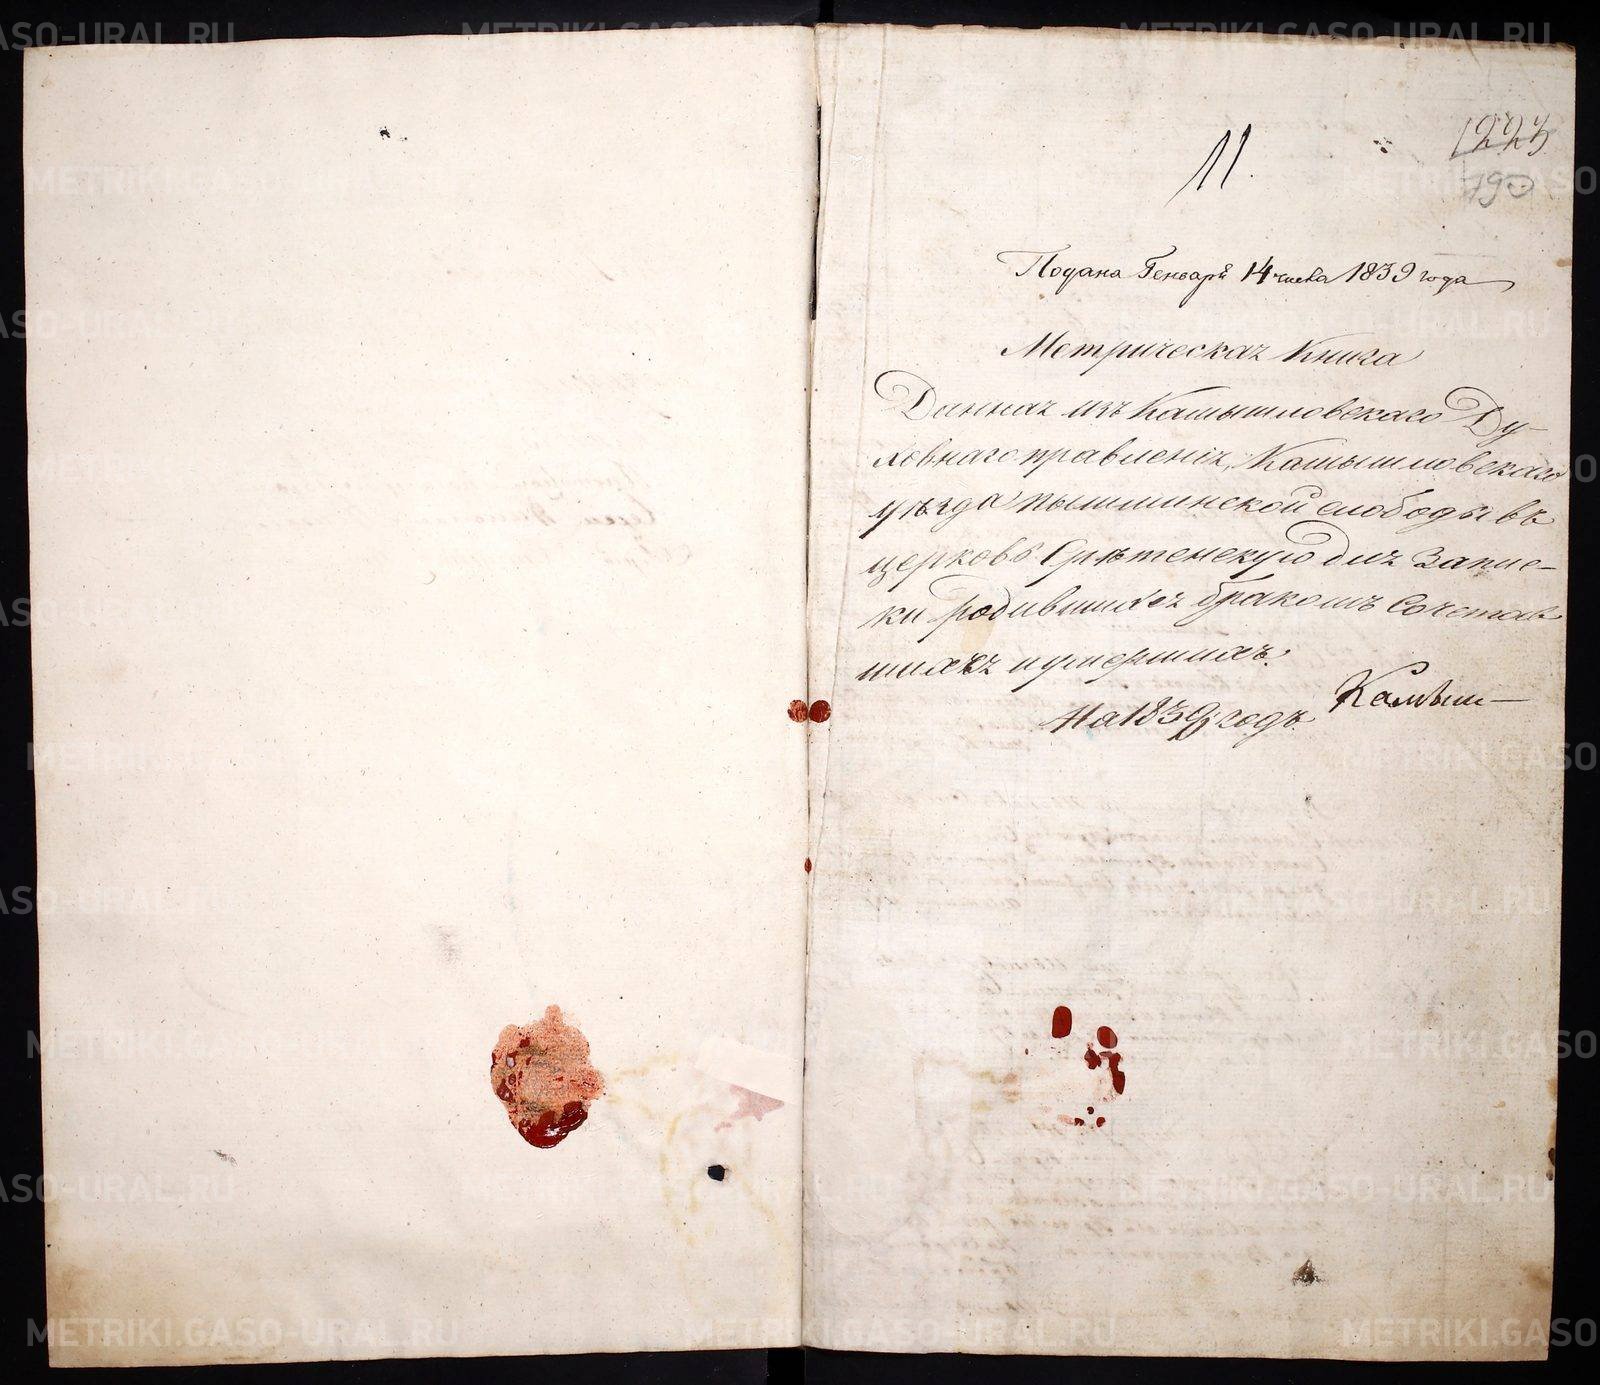 11.
1223
190
Подана Генваря 14 числа 1839 года
Метрическая Книга
Данная изъ Камышловскаго Ду-
ховнаго правленія, Камышловскаго
уѣзда Пышминской слободы въ
церковь Срѣтенскую для Записи-
ки родившихся бракомъ Сочетав
шихся и умершихъ.
На 1839й годъ. Камыш-
METRIKI.GASO-URAL.RU